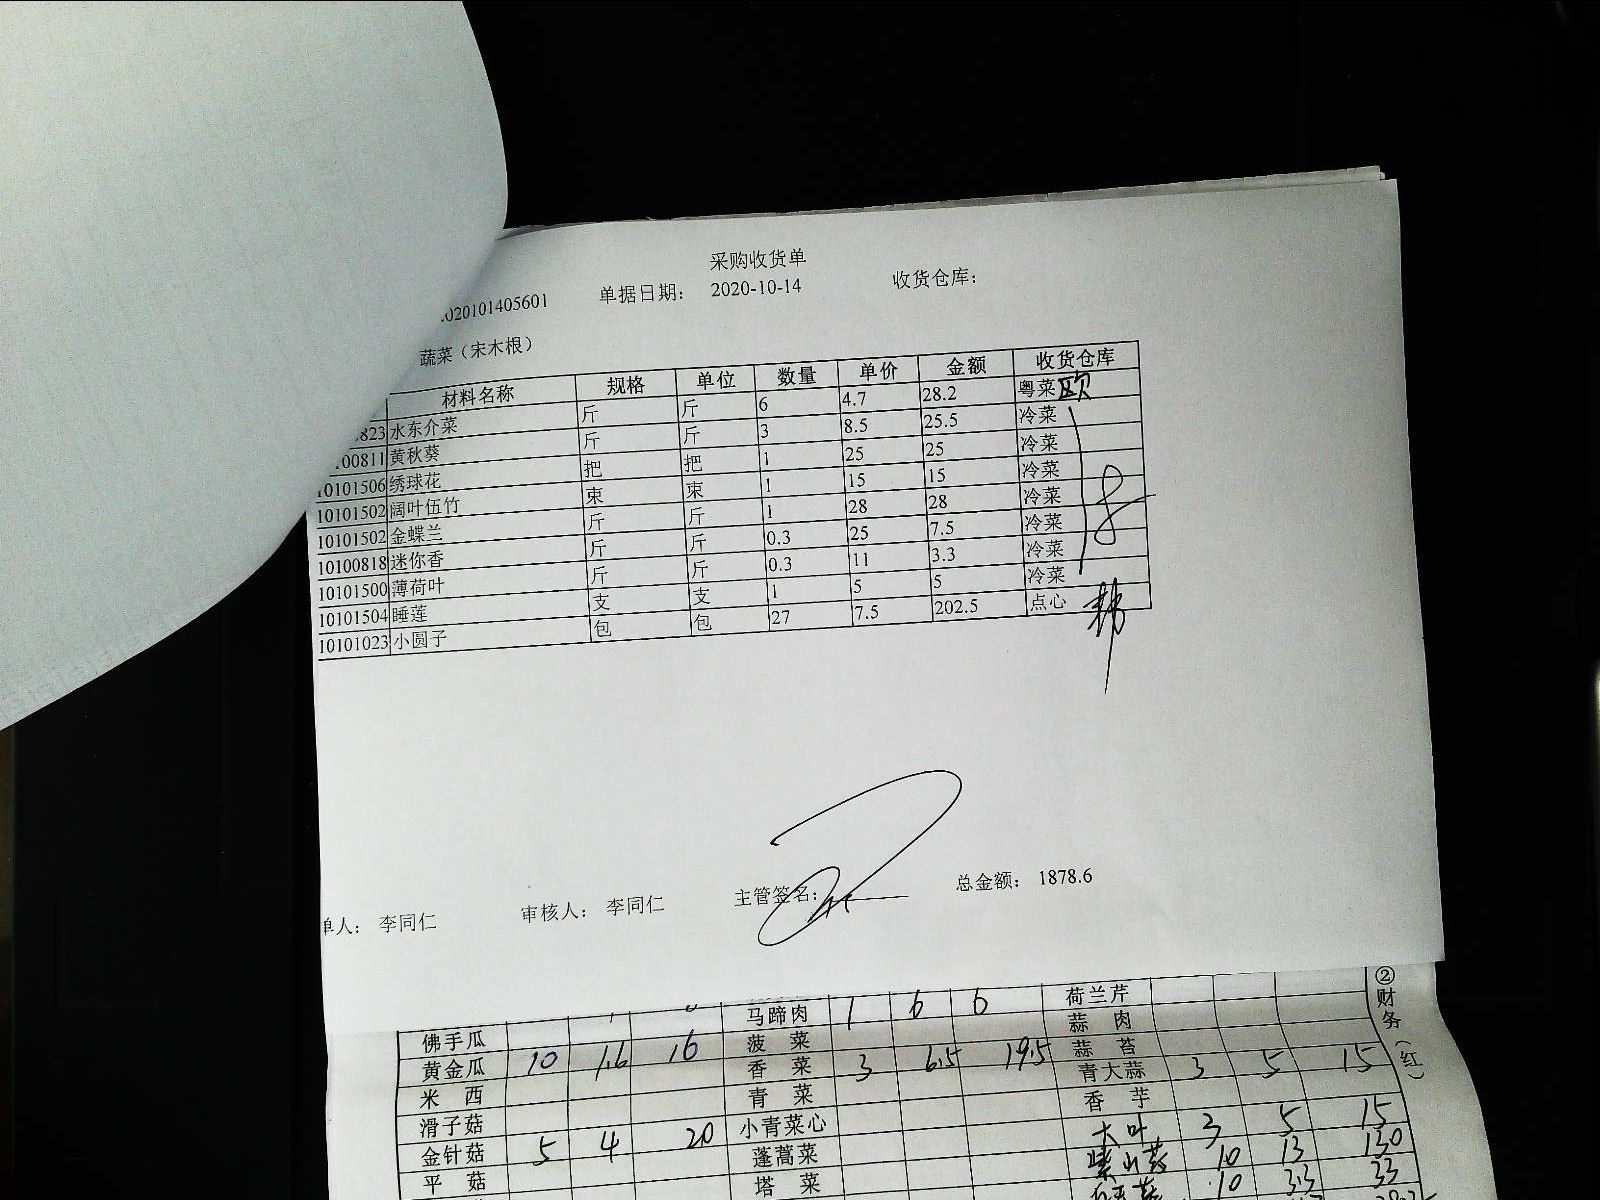 采购收货单
2020101405601 单据日期： 2020-10-14 收货仓库：
蔬菜（宋木根）
材料名称 规格 单位 数量 单价 金额 收货仓库
823 水东介菜 斤 斤 6 4.7 28.2 粤菜 欧
100811 黄秋葵 斤 斤 3 8.5 25.5 冷菜
10101506 绣球花 把 把 1 25 25 冷菜
10101502 阔叶伍竹 束 束 1 15 15 冷菜
10101502 金蝶兰 斤 斤 1 28 28 冷菜
10100818 迷你香 斤 斤 0.3 25 7.5 冷菜
10101500 薄荷叶 斤 斤 0.3 11 3.3 冷菜
10101504 睡莲 支 支 1 5 5 冷菜
10101023 小圆子 包 包 27 7.5 202.5 点心
单人： 李同仁 审核人： 李同仁 主管签名： 总金额： 1878.6
马蹄肉 1 6 6 荷兰芹
佛手瓜 菠菜 蒜肉
黄金瓜 10 1.6 16 香菜 3 6.5 19.5 蒜苔
米西 青菜 青大蒜 3 5 15
滑子菇 小青菜心 香芋
金针菇 5 4 20 蓬蒿菜 大叶 3 5 15
平菇 塔菜 10 13 130
10 3.3 33
②财务（红）